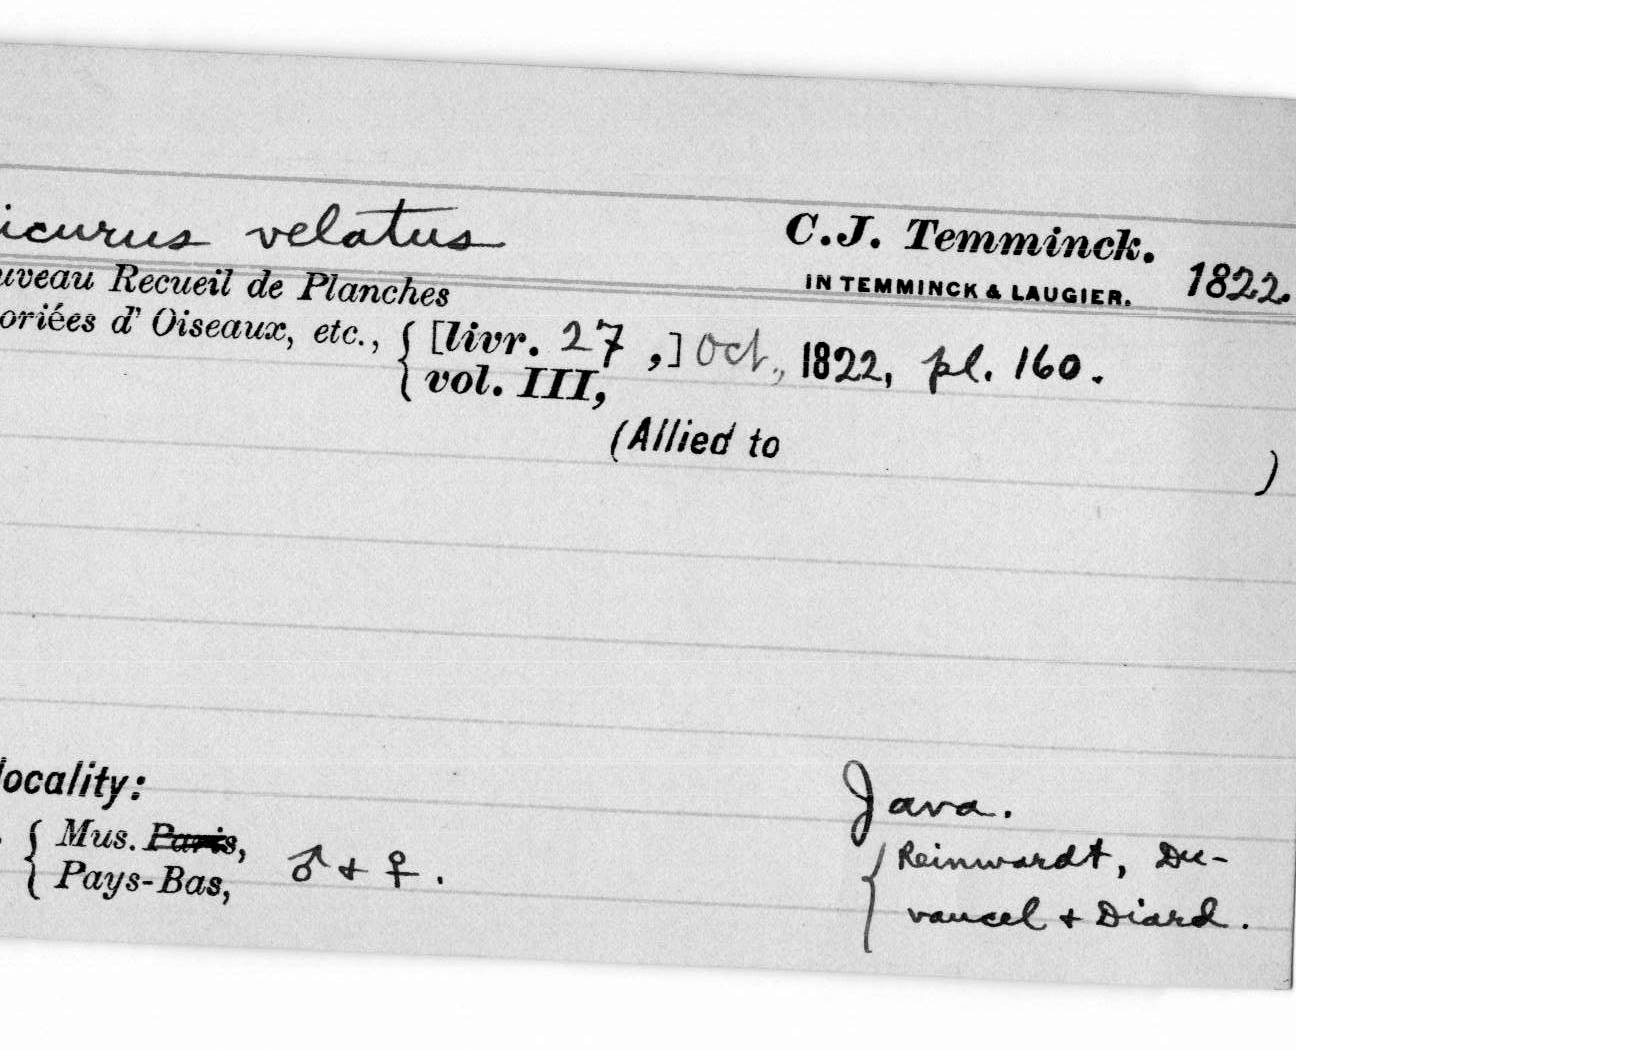 icurus velatus C.J. Temminck.
IN TEMMINCK & LAUGIER. 1822.
uveau Recueil de Planches
oriées d' Oiseaux, etc., { [livr. 27 ,] Oct., 1822, pl. 160.
vol. III,
(Allied to )
locality: Java.
{ Mus. Paris, ♂ + ♀. { Reinwardt, Du-
Pays-Bas, vaucel + Diard.